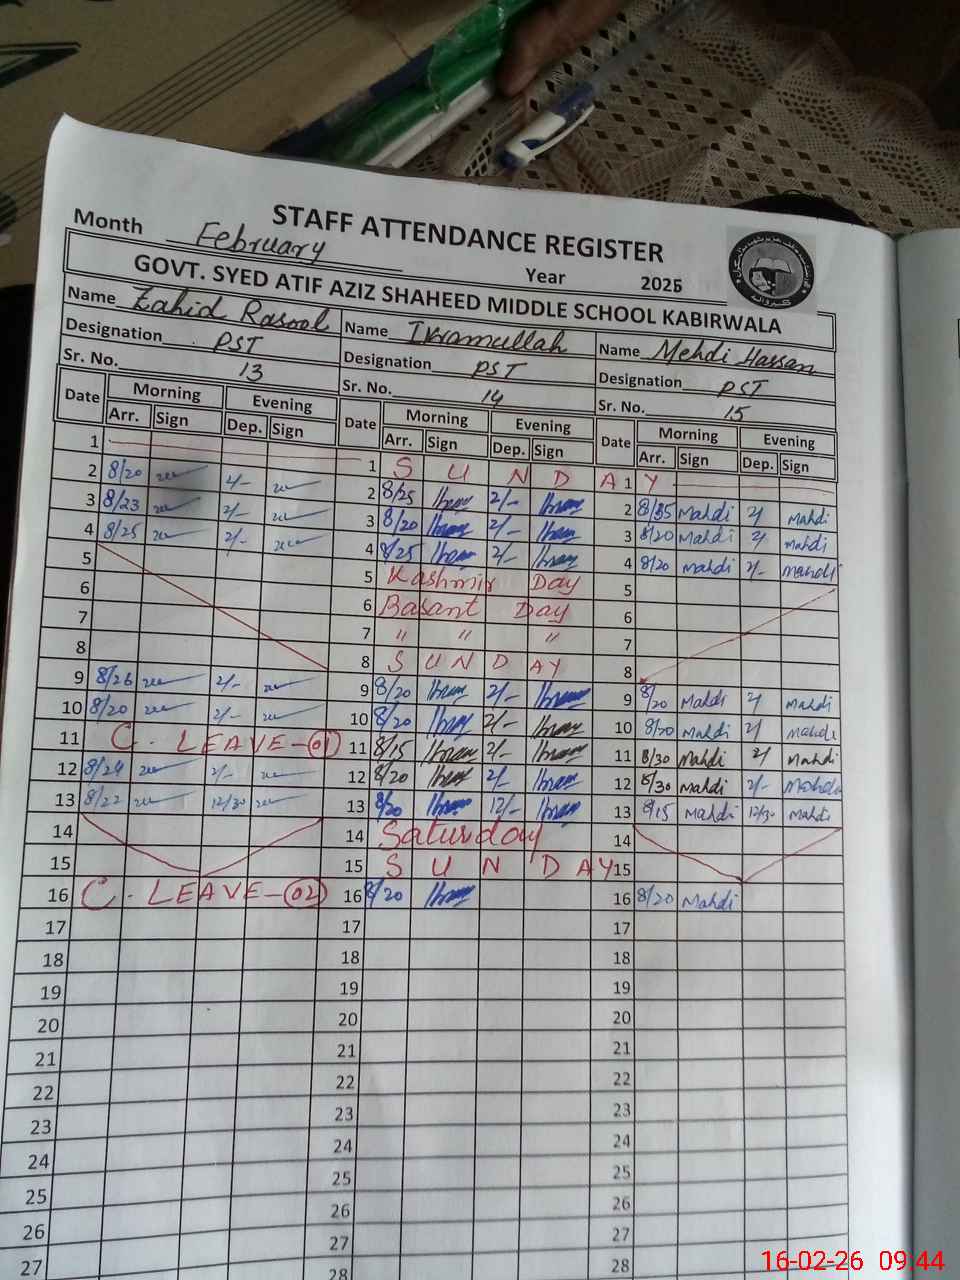 STAFF ATTENDANCE REGISTER
Month February Year 2026
GOVT. SYED ATIF AZIZ SHAHEED MIDDLE SCHOOL KABIRWALA
Name Zahid Rasool Name Ikramullah Name Mehdi Hassan
Designation PST Designation PST Designation PST
Sr. No. 13 Sr. No. 14 Sr. No. 15
Date Morning Evening Date Morning Evening Date Morning Evening
Arr. Sign Dep. Sign Arr. Sign Dep. Sign Arr. Sign Dep. Sign
1 1 S U N D A 1 Y
2 8/20 2/- 2 8/25 Ikram 2/- Ikram 2 8/35 Mahdi 2/ Mahdi
3 8/23 2/- 3 8/20 Ikram 2/- Ikram 3 8/20 Mahdi 2/ Mahdi
4 8/25 2/- 4 8/25 Ikram 2/- Ikram 4 8/20 Mahdi 2/- Mahdi
5 5 Kashmir Day 5
6 6 Basant Day 6
7 7 " " " 7
8 8 S U N D A Y 8
9 8/26 2/- 9 8/20 Ikram 2/- Ikram 9 8/20 Mahdi 2/ Mahdi
10 8/20 2/- 10 8/20 Ikram 2/- Ikram 10 8/20 Mahdi 2/ Mahdi
11 C. LEAVE-01 11 8/15 Ikram 2/- Ikram 11 8/30 Mahdi 2/ Mahdi
12 8/24 2/- 12 8/20 Ikram 2/- Ikram 12 8/30 Mahdi 2/- Mahdi
13 8/22 12/30 13 8/20 Ikram 12/- Ikram 13 8/15 Mahdi 12/30 Mahdi
14 14 Saturday 14
15 15 S U N D A Y 15
16 C. LEAVE-02 16 8/20 Ikram 16 8/20 Mahdi
17 17 17
18 18 18
19 19 19
20 20 20
21 21 21
22 22 22
23 23 23
24 24 24
25 25 25
26 26 26
27 27 27
28 28
16-02-26 09:44